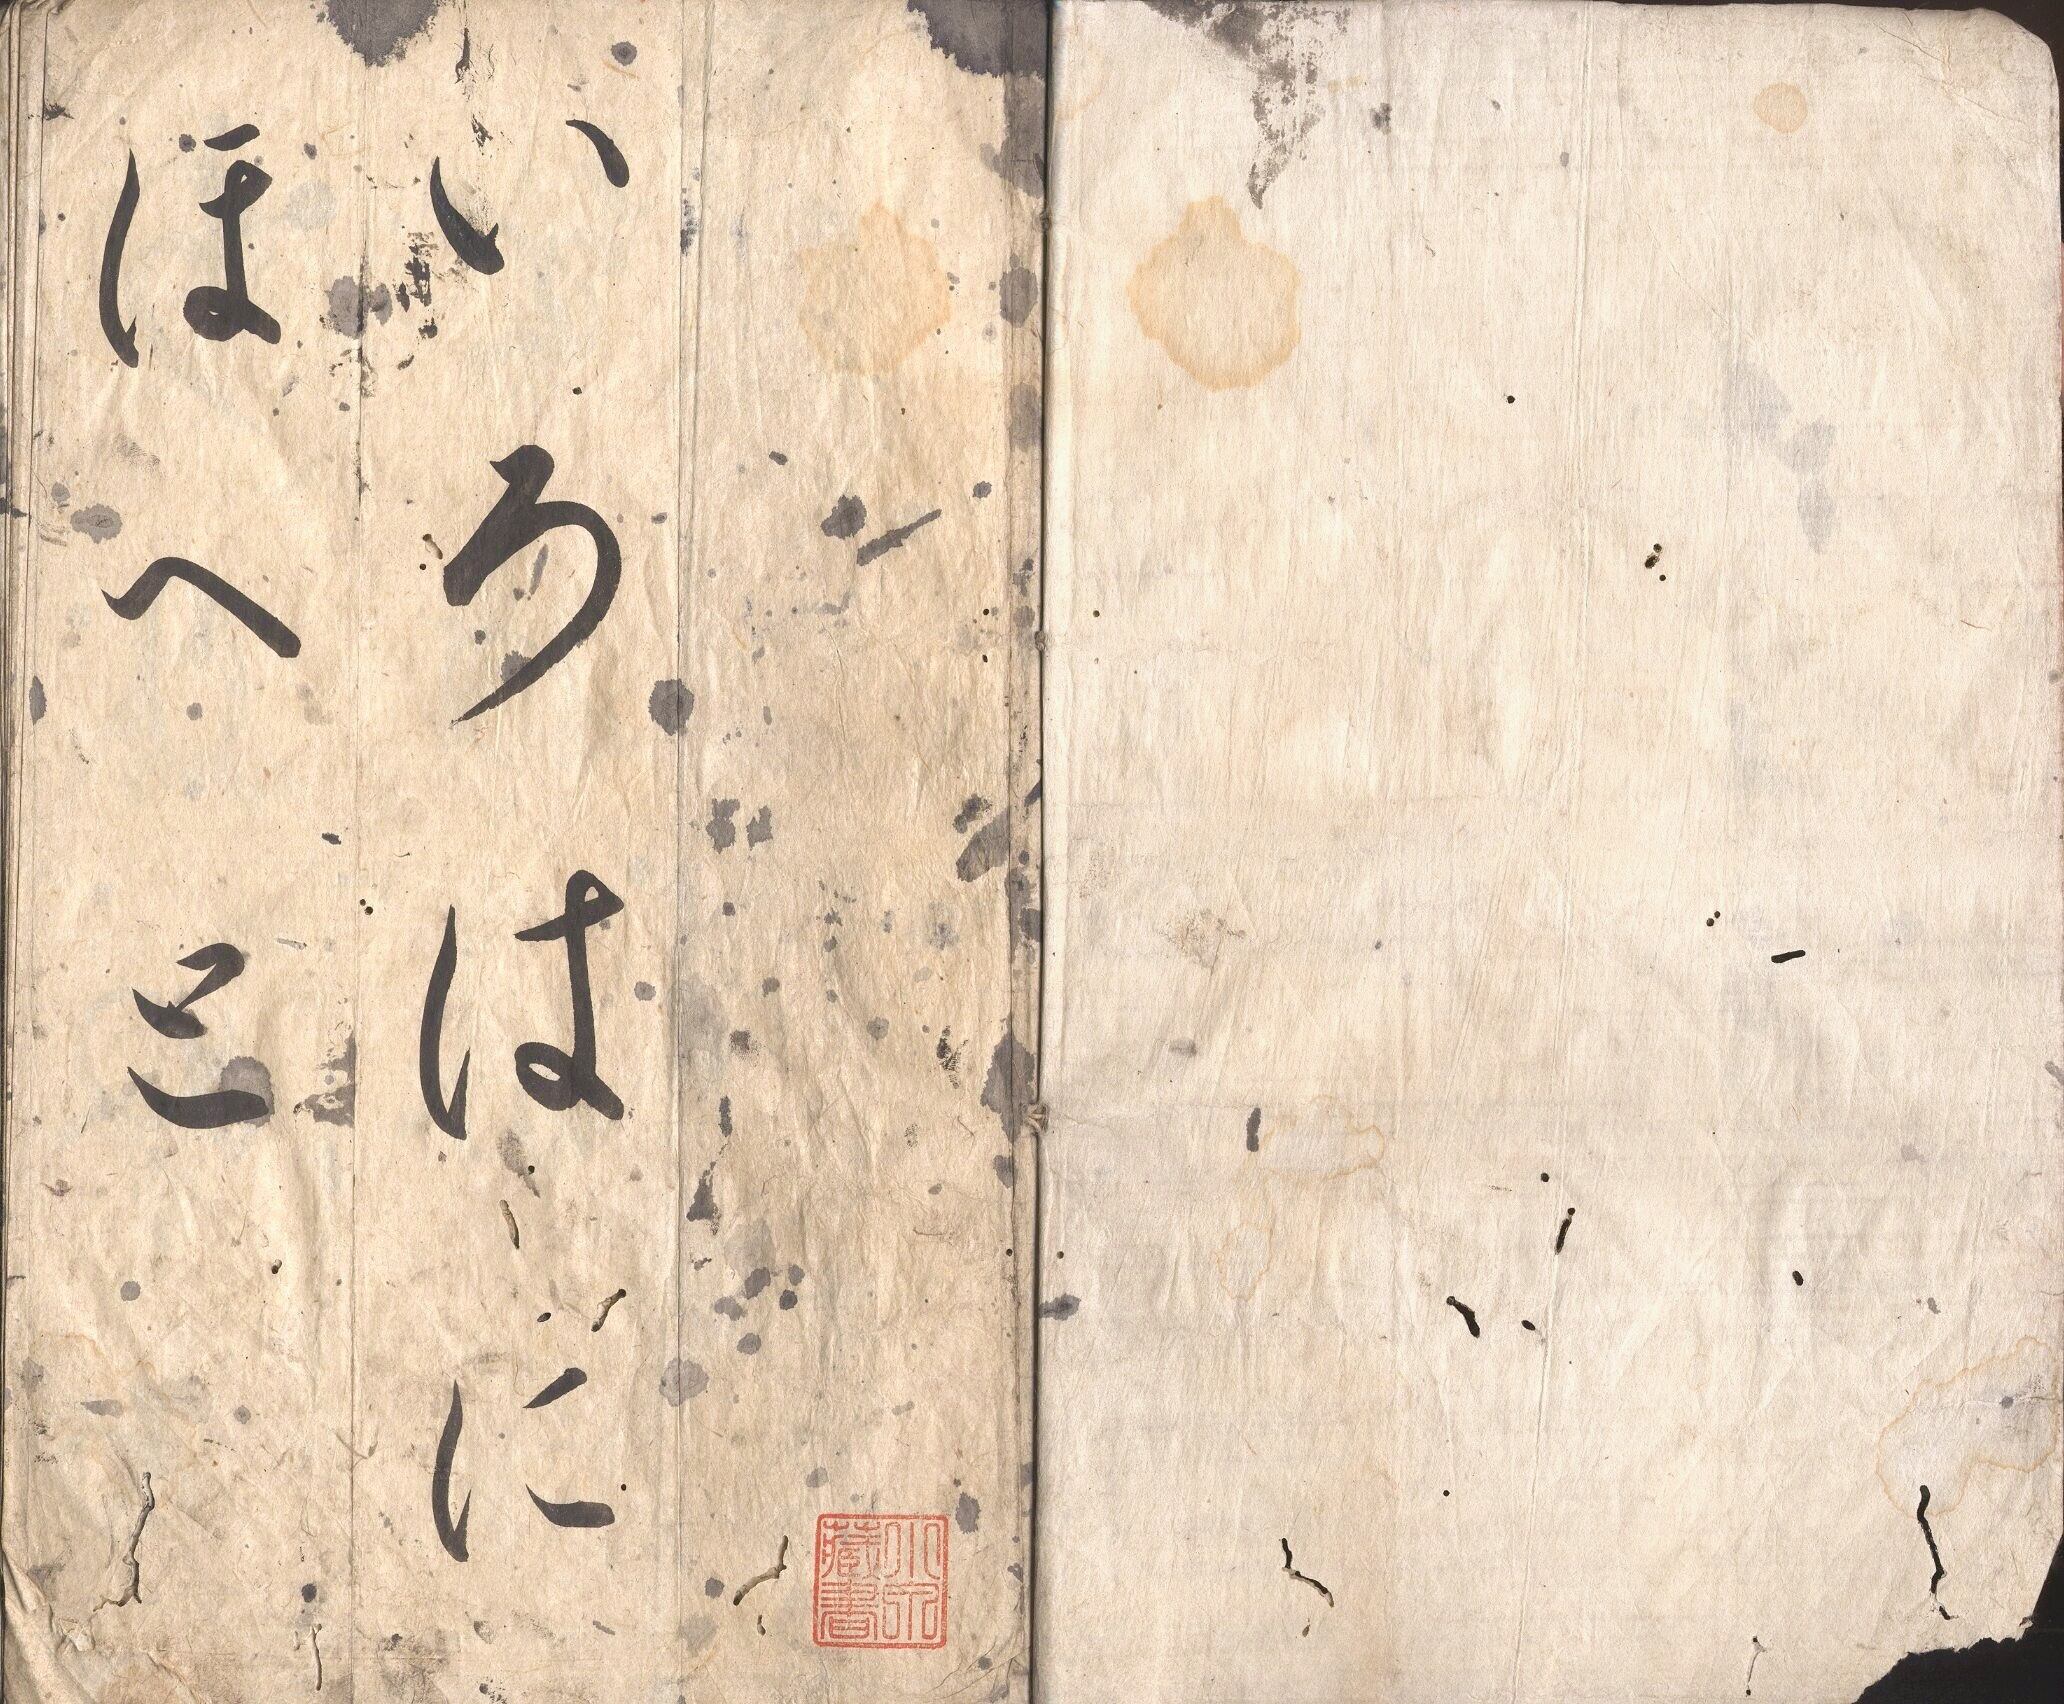 いろはに
ほへと
小泉藏書